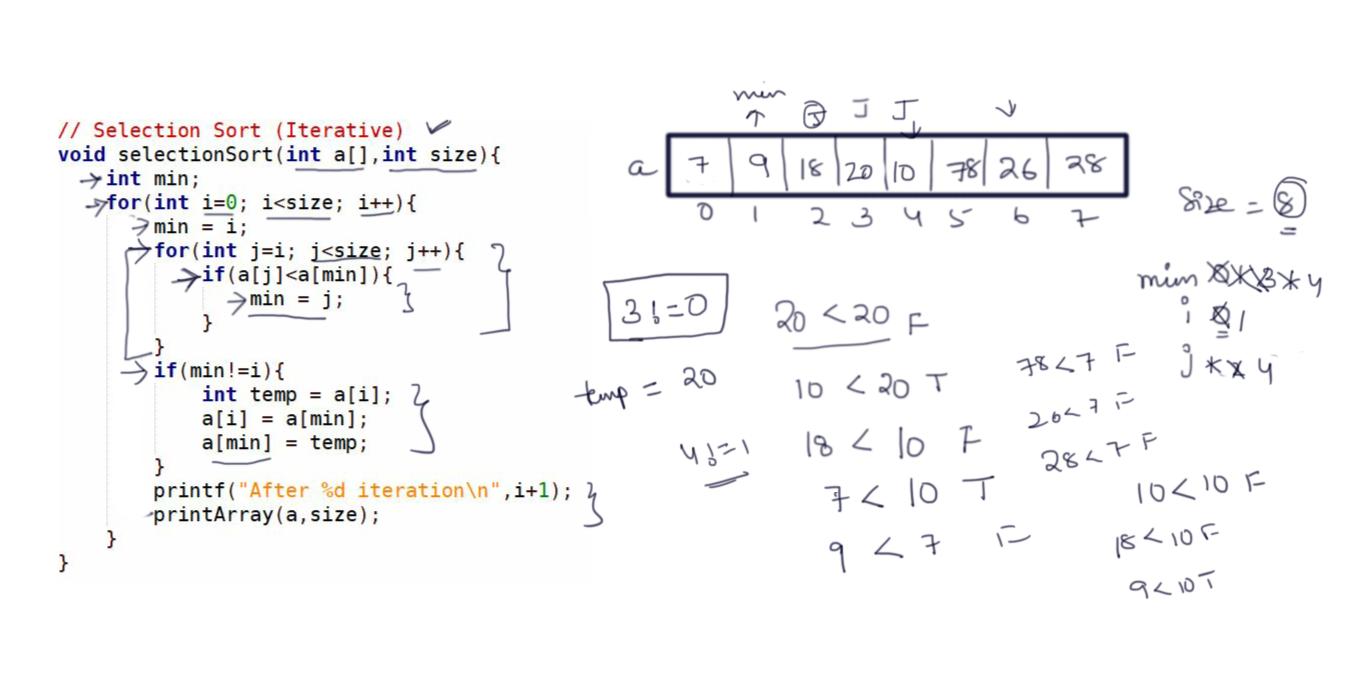 // Selection Sort (Iterative)
void selectionSort(int a[],int size){
int min;
for(int i=0; i<size; i++){
min = i;
for(int j=i; j<size; j++){
if(a[j]<a[min]){
min = j;
}
}
if(min!=i){
int temp = a[i];
a[i] = a[min];
a[min] = temp;
}
printf("After %d iteration\n",i+1);
printArray(a,size);
}
}
min J J J
a 7 9 18 20 10 78 26 28
0 1 2 3 4 5 6 7
Size = 8
3!=0
temp = 20
4!=1
20 < 20 F
10 < 20 T
18 < 10 F
7 < 10 T
9 < 7 F
78<7 F
26<7 F
28<7 F
min 4
i 0 1
j 4
10<10 F
18<10 F
9<10 T